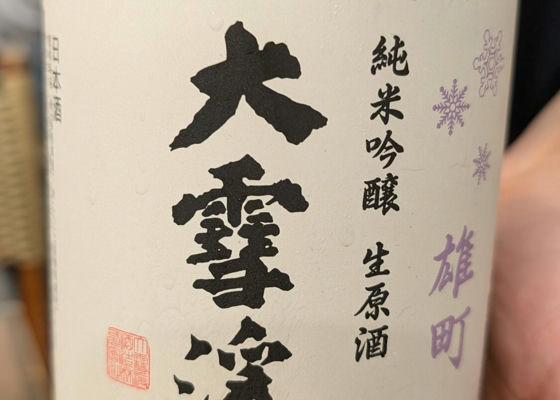 雄町
純米吟醸 生原酒
大雪渓
日本酒